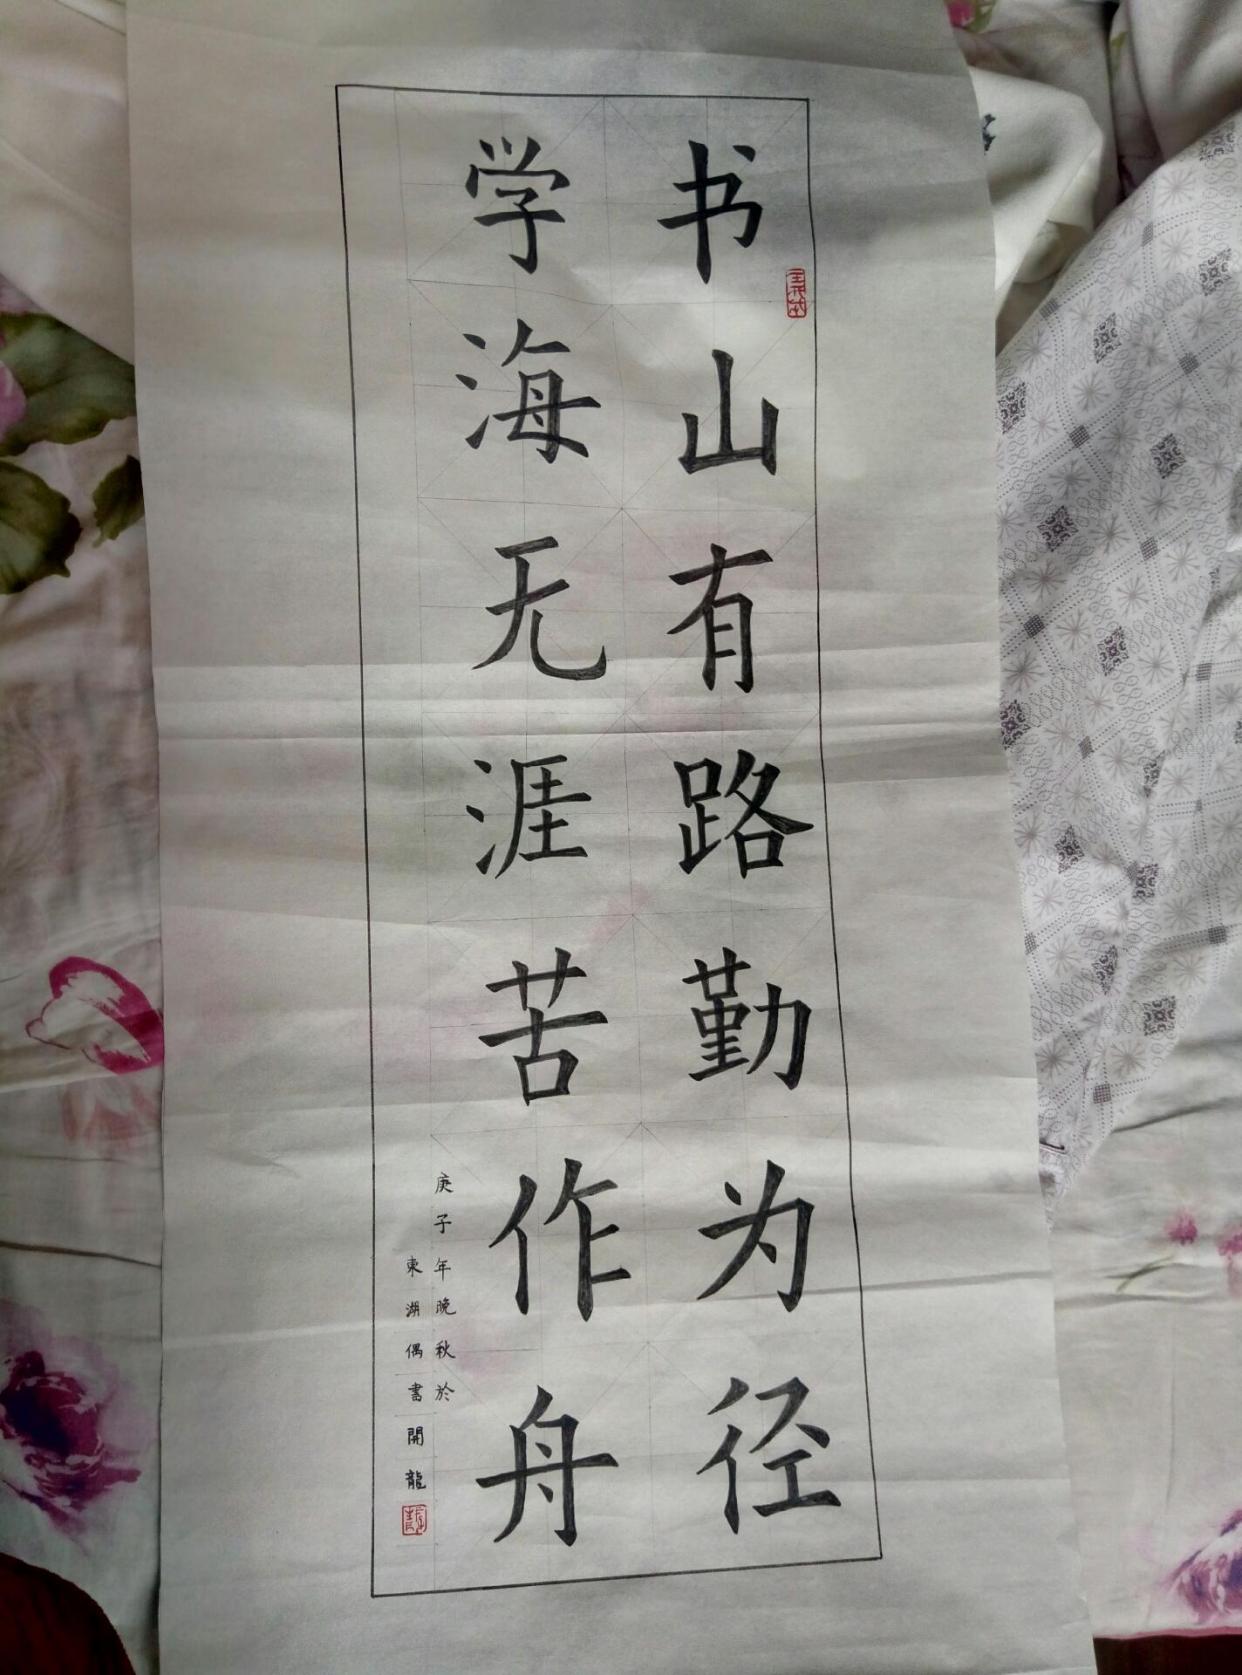 书山有路勤为径
学海无涯苦作舟
庚子年晚秋於
東湖偶書開龍